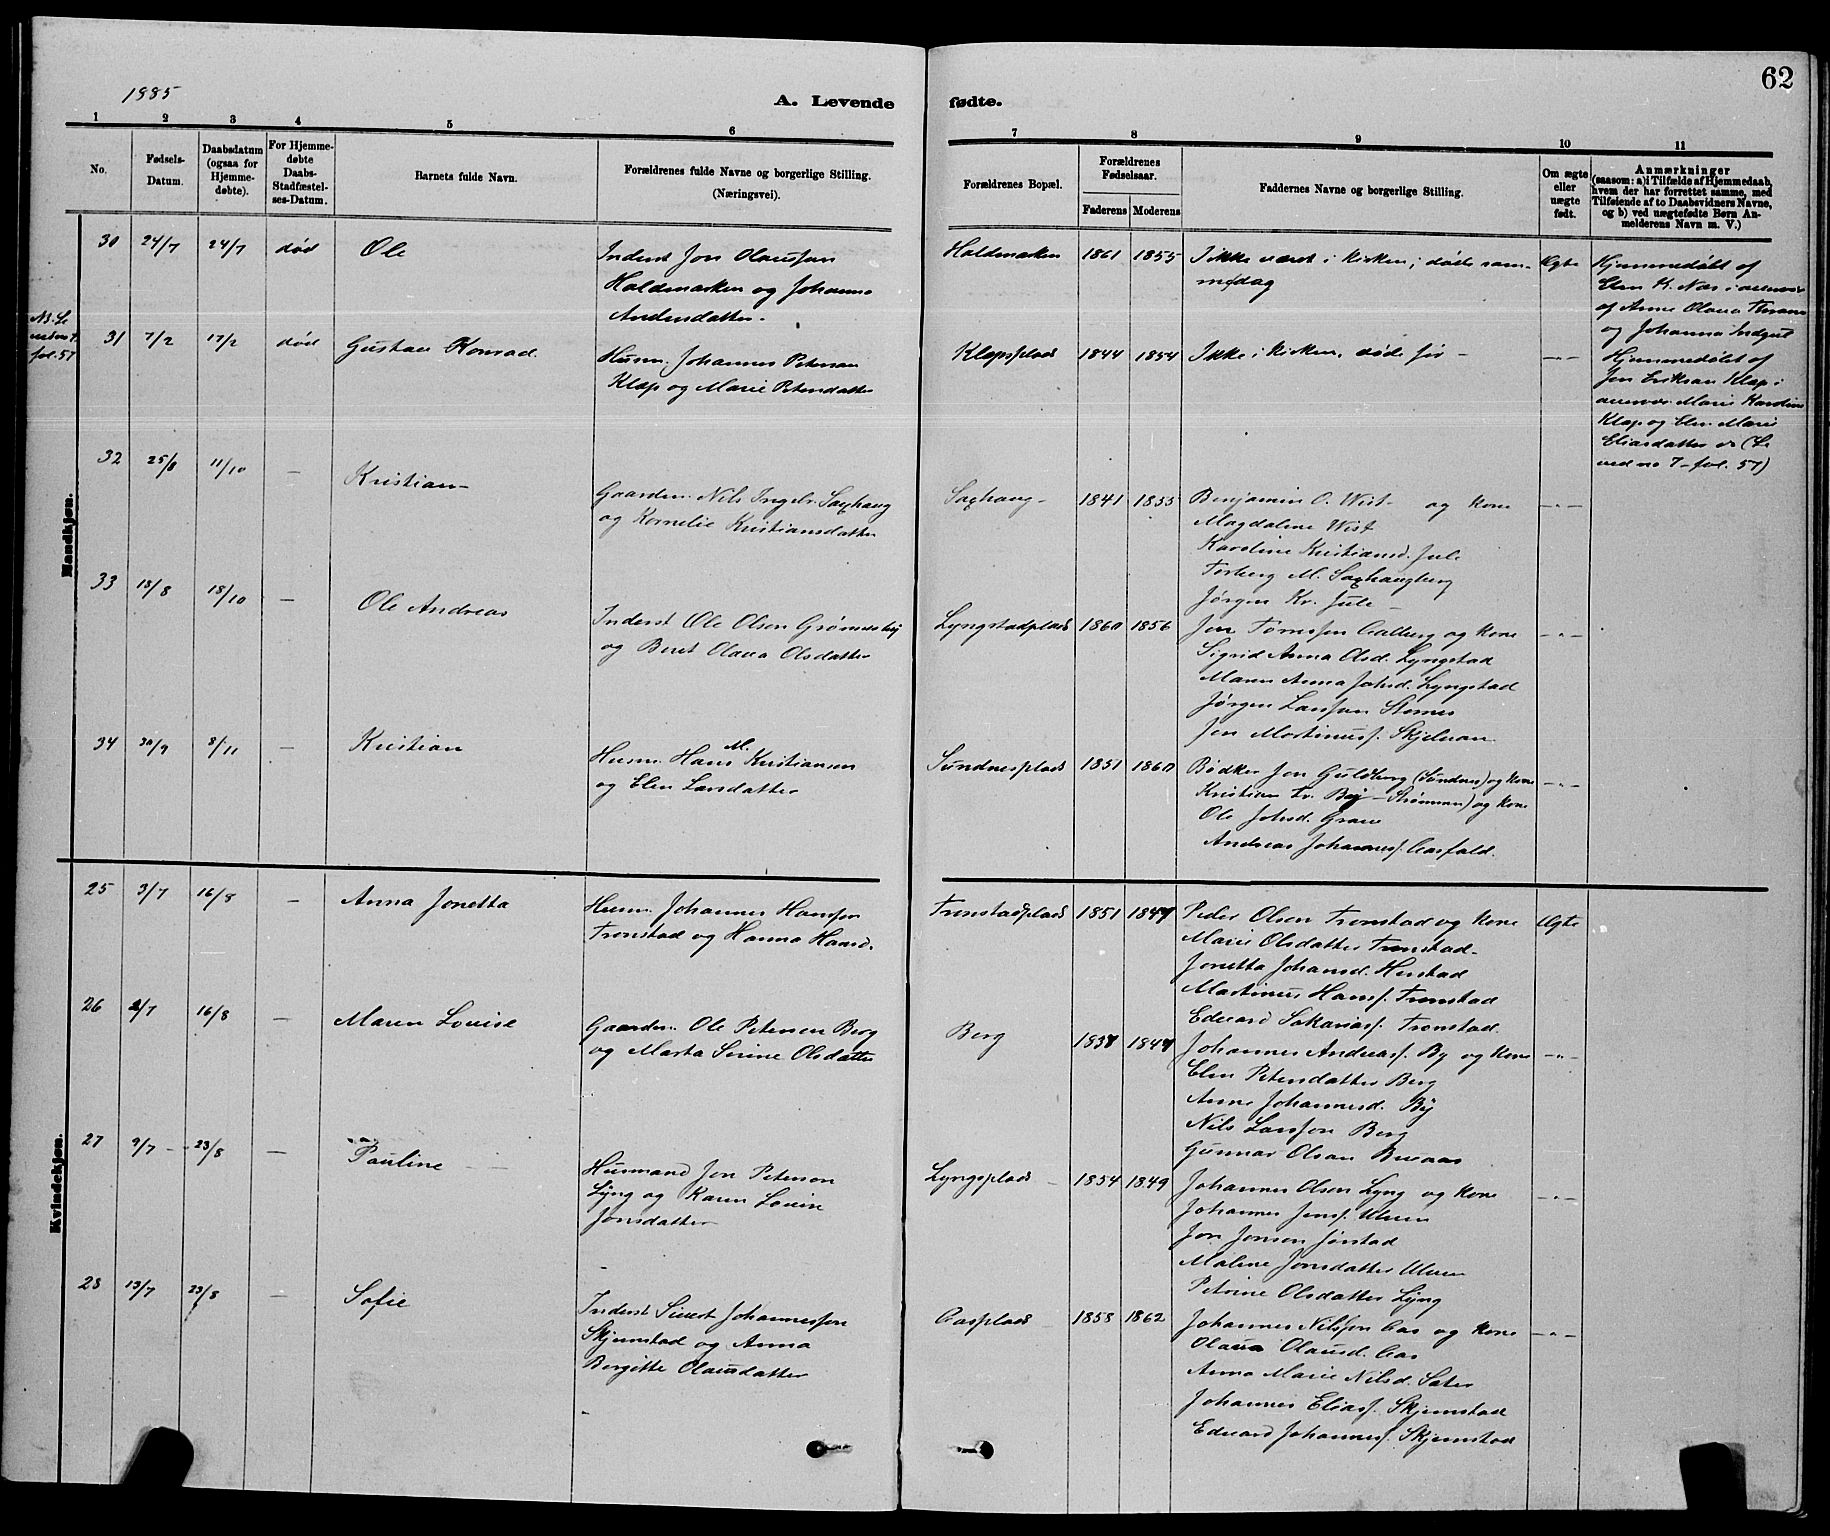 62
1885
A. Levende fødte.
1 2 3 4 5 6 7 8 9 10 11
No.
Fødsels-Datum.
Daabsdatum (ogsaa for Hjemme-døbte).
For Hjemme-døbte Daabs-Stadfæstel-ses-Datum.
Barnets fulde Navn.
Forældrenes fulde Navne og borgerlige Stilling.
(Næringsvei).
Forældrenes Bopæl.
Forældrenes Fødselsaar.
Faderens Moderens
Faddernes Navne og borgerlige Stilling.
Om ægte eller uægte født.
Anmærkninger
(saasom: a) i Tilfælde af Hjemmedaab,
hvem der har forrettet samme, med
Tilføiende af to Daabsvidners Navne,
og b) ved uægtefødte Børn An-
melderens Navn m. V.)
Mandkjøn.
30 24/7 24/7 død Ole
Inderst Jon Olausson
Haldemarken og Johanna
Andersdatter.
Haldemarken 1861 1855
Ikke været i kirken; døde sam-
medag
Ægte
Hjemmedøbt af
Elen K. Næs i overvær
af Anne Olava
og Johanna
fol. 57
31 7/2 17/2 død Gustav Konrad
Husm. Johannes Petersen
Klæp og Marie Petersdatter
Klæpsplads 1844 1854
Ikke i kirken, døde før —
— " —
Hjemmedøbt af
Jon Eriksen Klæp i
overvær Marie Karoline
Klæp og Elen Marie
Eliasdatter
ved no 7 – fol. 57)
32 25/8 11/10 — Kristian
Gaardm. Nils Ingebr. Saxhaug
og Kornelie Kristiansdatter
Saxhaug 1841 1855
Benjamin O. Wist og Kone
Magdalene Wist
Karoline Kristiansd. Jule
Torberg M. Saxhaugberg
Jørgen Kr. Jule
— " —
33 18/8 18/10 — Ole Andreas
Inderst Ole Olsen
og Beret Olava Olsdatter
Lyngstadplads 1860 1856
Jon Tomssen og Kone
Sigrid Anna Olsd. Lyngstad
Maren Anna Johsd. Lyngstad
Jørgen Larssen Stornes
Jon Martinusf. Skjelvan
— " —
34 30/9 8/11 — Kristian
Husm. Hans M. Kristiansen
og Elen Larsdatter
Sundnesplads 1851 1860
Bødker Jon Guldberg (Sundnes) og Kone
Kristian Tr. By — Strømmen) og Kone
Ole Johsd. Grane
Andreas Johannesf. Aasfald.
— " —
Kvindekjøn.
25 3/7 16/8 — Anna Jonetta
Husm. Johannes Hanssen
Tronstad og Hanna Hansd.
Tronstadplads 1851 1847
Peder Olsen Tronstad og Kone
Marie Olsdatter Tronstad
Jonetta Johansd. Hustad
Martinus Hansf. Tronstad
Edvard Sakariasf. Tronstad.
Ægte
26 2/7 16/8 — Maren Louise
Gaardm. Ole Petersen Berg
og Marta Sirine Olsdatter
Berg 1837 1847
Johannes Andreasf. By og Kone
Elen Petersdatter Berg
Anne Johannesd. By
Nils Larssen Berg
Gunnar Olsen Breaas
— " —
27 9/7 23/8 — Pauline
Husmand Jon Peterson
Lyng og Karen Louise
Jonsdatter
Lyngsplads 1854 1849
Johannes Olsen Lyng og Kone
Johannes Jensf. Ulven
Jon Jonsen Jørstad
Malene Jonsdatter Ulven
Petrine Olsdatter Lyng
— " —
28 13/7 23/8 — Sofie
Inderst Sivert Johannessen
Skjemstad og Anna
Bergitte Olausdatter
Aasplads 1858 1862
Johannes Nilssen Aas og Kone
Olava Olausd. Aas
Anna Marie Nilsd. Sater
Johannes Eliasf. Skjemstad
Edvard Johannesf. Skjemstad
— " —